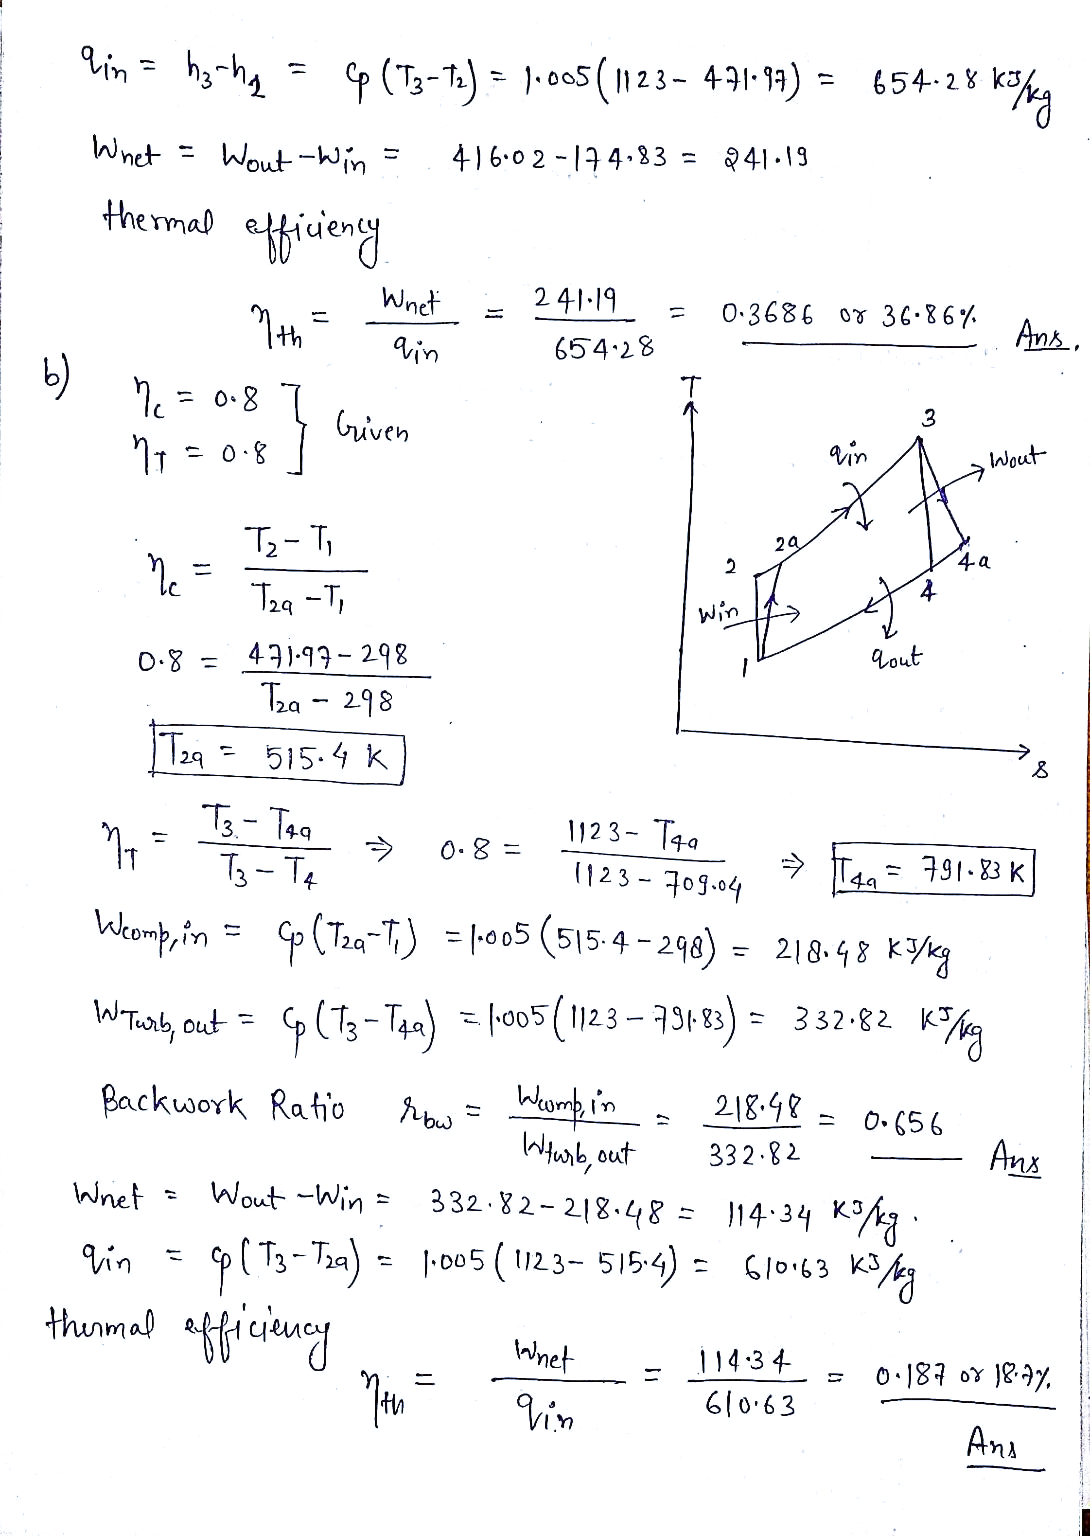 qin = h3-h2 = Cp (T3-T2) = 1.005 (1123 - 471.97) = 654.28 KJ/kg
Wnet = Wout - Win = 416.02 - 174.83 = 241.19
thermal efficiency
ηth = Wnet / qin = 241.19 / 654.28 = 0.3686 or 36.86% Ans.
b)
ηc = 0.8
ηT = 0.8 } Given
ηc = T2 - T1 / T2a - T1
0.8 = 471.97 - 298 / T2a - 298
T2a = 515.4 K
T
3
qin
Wout
2a
2
4a
4
Win
1
qout
s
ηT = T3 - T4a / T3 - T4 ⇒ 0.8 = 1123 - T4a / 1123 - 709.04 ⇒ T4a = 791.83 K
Wcomp, in = Cp (T2a - T1) = 1.005 (515.4 - 298) = 218.48 KJ/kg
WTurb, out = Cp (T3 - T4a) = 1.005 (1123 - 791.83) = 332.82 KJ/kg
Backwork Ratio rbw = Wcomp, in / Wturb, out = 218.48 / 332.82 = 0.656 Ans
Wnet = Wout - Win = 332.82 - 218.48 = 114.34 KJ/kg.
qin = Cp (T3 - T2a) = 1.005 (1123 - 515.4) = 610.63 KJ/kg
thermal efficiency
ηth = Wnet / qin = 114.34 / 610.63 = 0.187 or 18.7%
Ans